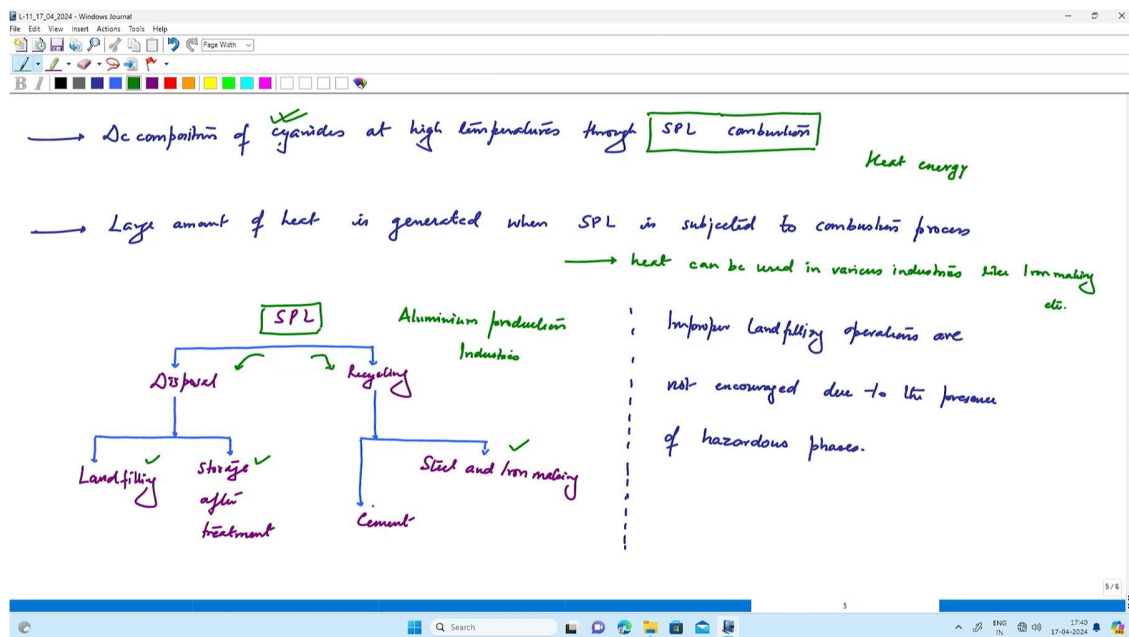 L-11_17_04_2024 - Windows Journal
File Edit View Insert Actions Tools Help
Page Width
B I
Decomposition of cyanides at high temperatures through SPL combustion
Heat energy
Large amount of heat is generated when SPL is subjected to combustion process
heat can be used in various industries like Iron making
etc.
SPL
Aluminium production
Industries
Disposal
Recycling
Landfilling
Storage
after
treatment
Steel and Iron making
Cement
Improper Landfilling operations are
not encouraged due to the presence
of hazardous phases.
5/6
5
Search
ENG
IN
17:40
17-04-2024